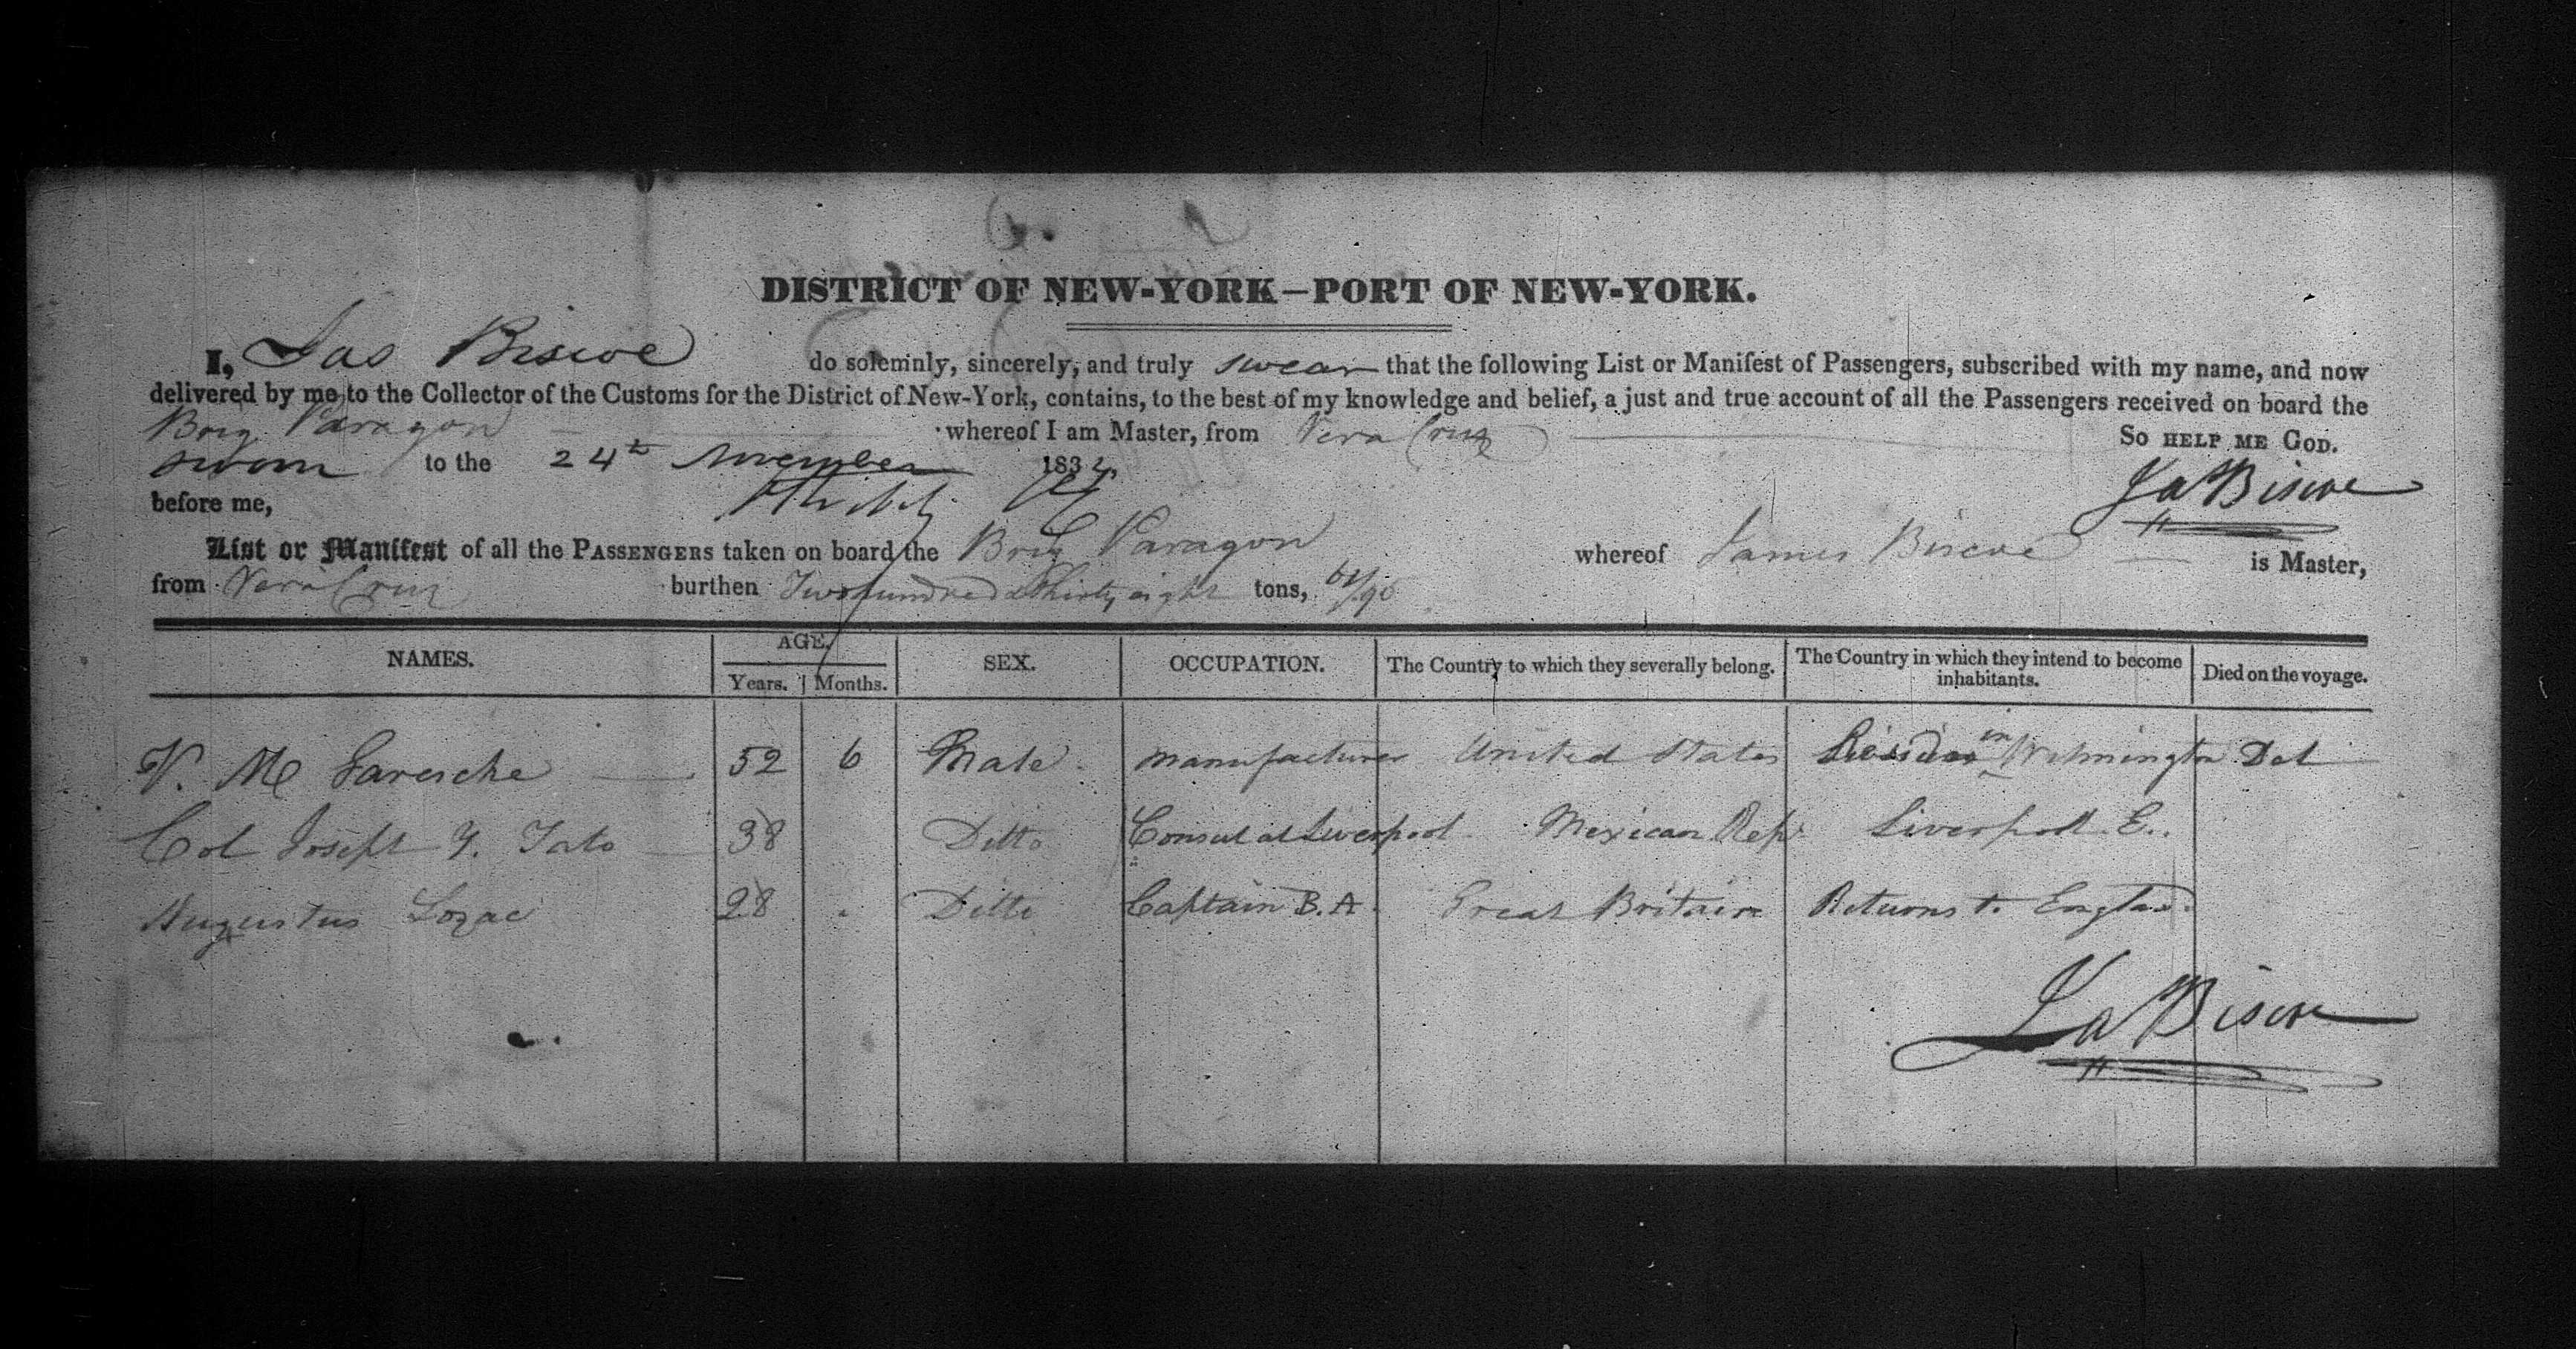 DISTRICT OF NEW-YORK—PORT OF NEW-YORK.
I, Jas Biscoe do solemnly, sincerely, and truly swear that the following List or Manifest of Passengers, subscribed with my name, and now
delivered by me to the Collector of the Customs for the District of New-York, contains, to the best of my knowledge and belief, a just and true account of all the Passengers received on board the
Brig Paragon whereof I am Master, from Vera Cruz So HELP ME GOD.
sworn to the 24th November 183
before me, Jas Biscoe
List or Manifest of all the PASSENGERS taken on board the Brig Paragon whereof James Biscoe is Master,
from Vera Cruz burthen Two hundred & Thirty eight tons,
NAMES. AGE. Years. Months. SEX. OCCUPATION. The Country to which they severally belong. The Country in which they intend to become inhabitants. Died on the voyage.
V. M Garesche 52 6 Male manufacturer United States Resides in Wilmington Del
Col Joseph Y. Tato 38 Ditto Consul at Liverpool Mexican Rep. Liverpool E.
Augustus Lozac 28 Ditto Captain B.A. Great Britain Returns to England
Jas Biscoe